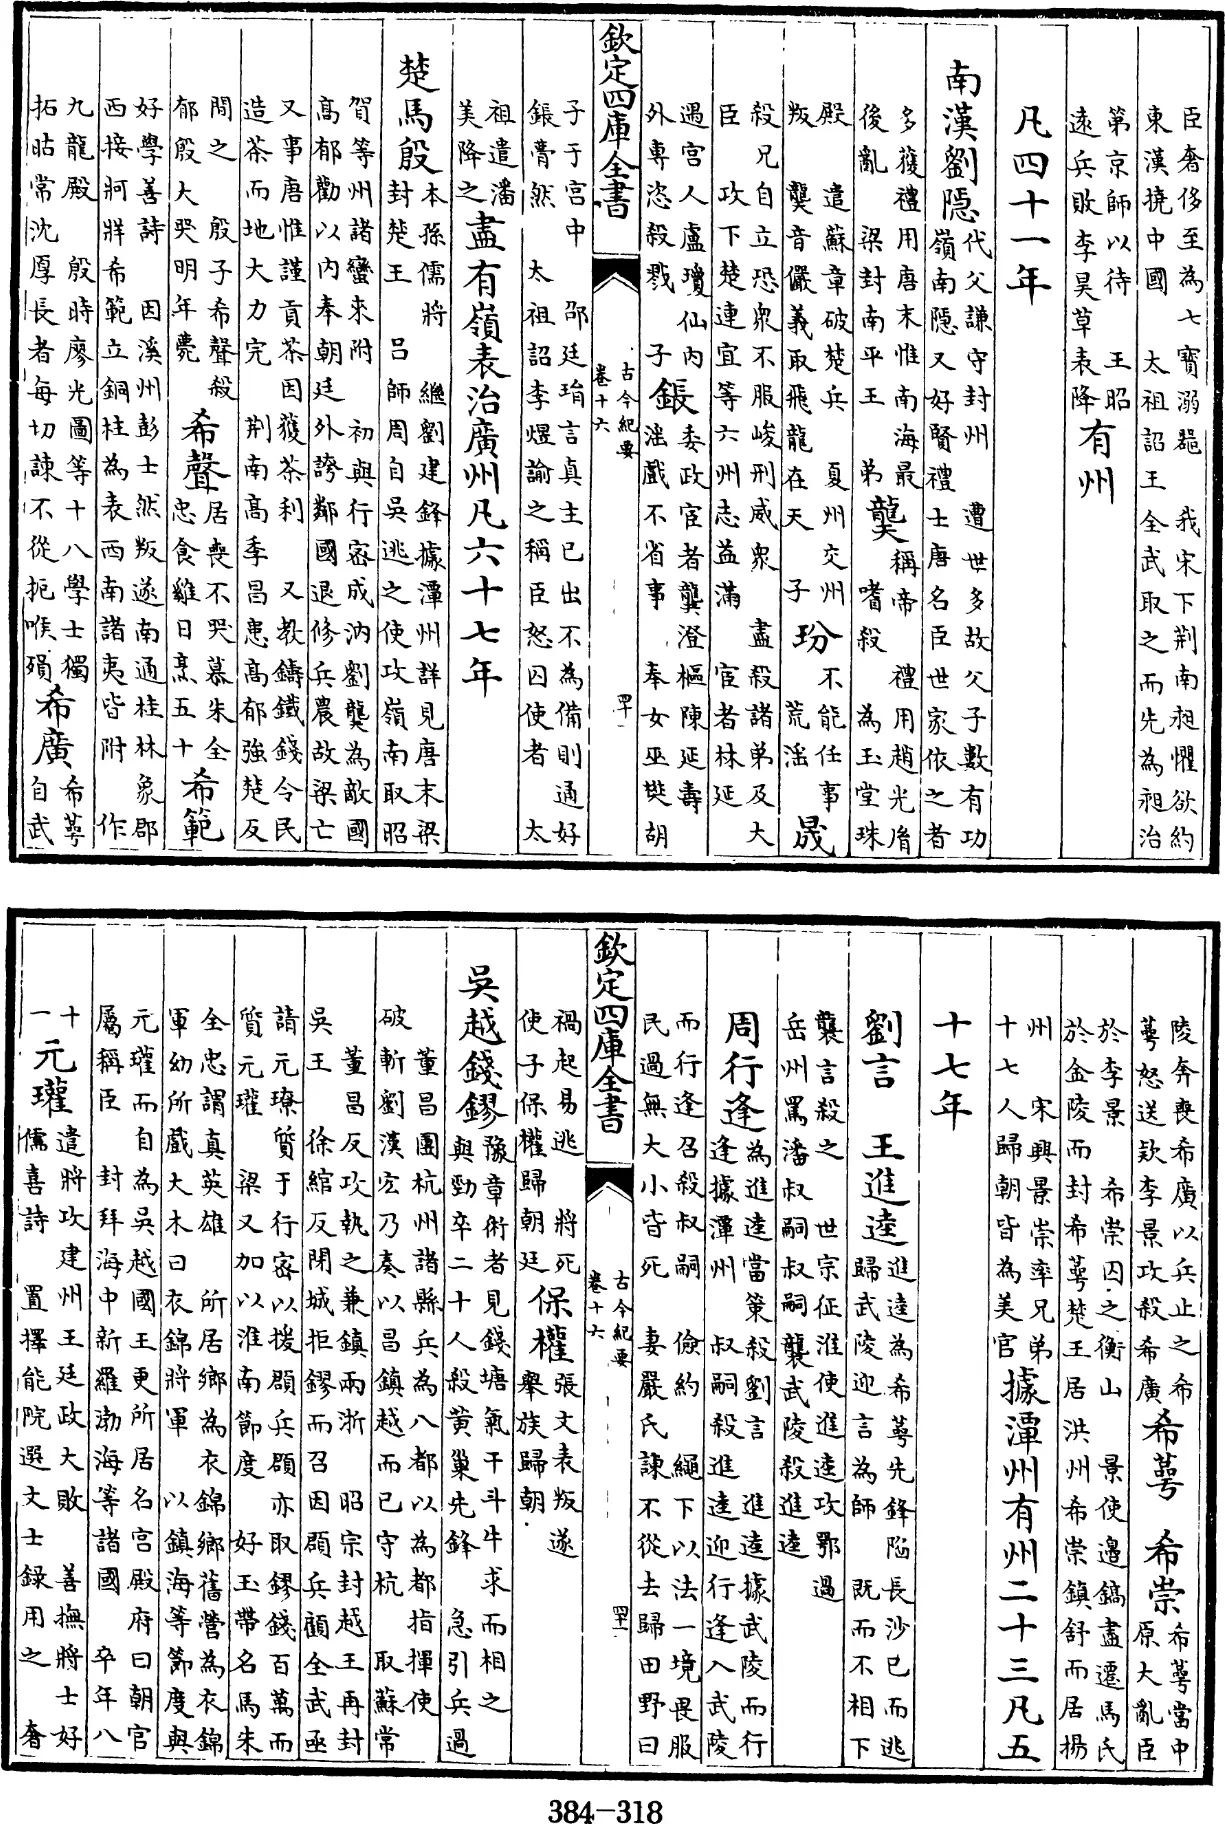 臣奢侈至為七寳溺器　我宋下荆南昶懼欲約
東漢撓中國　太祖詔王全武取之而先為昶治
第京師以待　王昭
遠兵敗李昊草表降
有州
凡四十一年
南漢劉隠
代父謙守封州　遭世多故父子數有功
嶺南隠又好賢禮士唐名臣世家依之者
多獲禮用唐末惟南海最
後亂　梁封南平王　弟
龑
稱帝　禮用趙光胤
嗜殺　為玉堂珠
殿　遣蘇章破楚兵　夏州交州
叛　龑音儼義取飛龍在天　子
玢
不能任事
荒淫
晟
殺兄自立恐衆不服峻刑威衆　盡殺諸弟及大
臣　攻下楚連宜等六州志益滿　宦者林延
遇宫人盧瓊仙内
外專恣殺戮　子
鋹
委政宦者龔澄樞陳延壽
淫戲不省事　奉女巫樊胡
欽定四庫全書
古今紀要
卷十六
四十一
子于宫中　邵廷琄言真主已出不為備則通好
鋹懵然　太祖詔李煜諭之稱臣怒囚使者　太
祖遣潘
美降之
盡有嶺表治廣州凡六十七年
楚馬殷
本孫儒將　繼劉建鋒據潭州詳見唐末梁
封楚王　呂師周自吳逃之使攻嶺南取昭
賀等州諸蠻來附　初與行密成汭劉龑為敵國
高郁勸以内奉朝廷外誇鄰國退修兵農故梁亡
又事唐惟謹貢茶因獲茶利　又教鑄鐵錢令民
造茶而地大力完　荆南高季昌患高郁強楚反
間之　殷子希聲殺
郁殷大哭明年薨
希聲
居喪不哭慕朱全
忠食雞日烹五十
希範
好學善詩　因溪州彭士然叛遂南通桂林象郡
西接牁牂希範立銅柱為表西南諸夷皆附　作
九龍殿　殷時廖光圖等十八學士獨
拓跋常沈厚長者每切諫不從扼喉殞
希廣
希萼
自武
陵奔喪希廣以兵止之希
萼怒送欵李景攻殺希廣
希萼　希崇
希萼當中
原大亂臣
於李景　希崇囚之衡山　景使邉鎬盡遷馬氏
於金陵而封希萼楚王居洪州希崇鎮舒而居揚
州　宋興景崇率兄弟
十七人歸朝皆為美官
據潭州有州二十三凡五
十七年
劉言　王進逵
進逵為希萼先鋒陷長沙已而逃
歸武陵迎言為師　既而不相下
襲言殺之　世宗征淮使進逵攻鄂過
岳州罵潘叔嗣叔嗣襲武陵殺進逵
周行逢
為進逵當策殺劉言　進逵據武陵而行
逢據潭州　叔嗣殺進逵迎行逢入武陵
而行逢召殺叔嗣　儉約　繩下以法一境畏服
民過無大小皆死　妻嚴氏諫不從去歸田野曰
欽定四庫全書
古今紀要
卷十六
四十二
禍起易逃　將死
使子保權歸朝廷
保權
張文表叛遂
舉族歸朝
吳越錢鏐
豫章術者見錢塘氣干斗牛求而相之
與勁卒二十人殺黄巢先鋒　急引兵過
董昌團杭州諸縣兵為八都以為都指揮使
破斬劉漢宏乃奏以昌鎮越而己守杭　取蘇常
董昌反攻執之兼鎮兩浙　昭宗封越王再封
吳王　徐綰反閉城拒鏐而召因頵兵顧全武亟
請元璙質于行密以援頵兵頵亦取鏐錢百萬而
質元瓘　梁又加以淮南節度　好玉帶名馬朱
全忠謂真英雄　所居鄉為衣錦鄉舊營為衣錦
軍幼所戲大木曰衣錦將軍　以鎮海等節度與
元瓘而自為吳越國王更所居名宫殿府曰朝官
屬稱臣　封拜海中新羅渤海等諸國　卒年八
十
一
元瓘
遣將攻建州王廷政大敗　善撫將士好
儒喜詩　置擇能院選文士録用之　奢
384-318